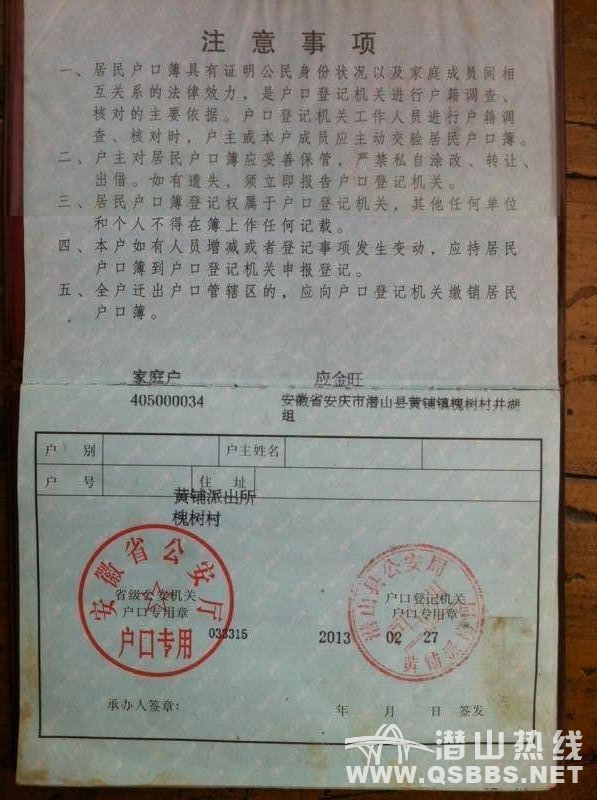 注意事项
一、居民户口簿具有证明公民身份状况以及家庭成员间相
互关系的法律效力，是户口登记机关进行户籍调查、
核对的主要依据。户口登记机关工作人员进行户籍调
查、核对时，户主或本户成员应主动交验居民户口簿。
二、户主对居民户口簿应妥善保管，严禁私自涂改、转让、
出借。如有遗失，须立即报告户口登记机关。
三、居民户口簿登记权属于户口登记机关，其他任何单位
和个人不得在簿上作任何记载。
四、本户如有人员增减或者登记事项发生变动，应持居民
户口簿到户口登记机关申报登记。
五、全户迁出户口管辖区的，应向户口登记机关缴销居民
户口簿。
家庭户 应金旺
405000034 安徽省安庆市潜山县黄铺镇槐树村井湖
组
户别 户主姓名
户号 住址
黄铺派出所
槐树村
安徽省公安厅
省级公安机关
户口专用章
户口专用
033315
潜山县公安局
户口登记机关
户口专用章
2013 02 27
黄铺派
承办人签章：
年 月 日 签发
潜山热线
WWW.QSBBS.NET